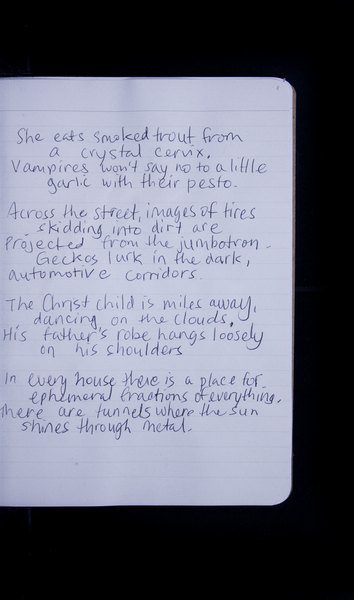 She eats smoked trout from
a crystal cervix.
Vampires won't say no to a little
garlic with their pesto.
Across the street, images of tires
skidding into dirt are
Projected from the jumbotron.
Geckos lurk in the dark,
automotive corridors.
The Christ child is miles away,
dancing on the clouds,
His father's robe hangs loosely
on his shoulders
In every house there is a place for
ephemeral fractions of everything.
There are tunnels where the sun
shines through metal.